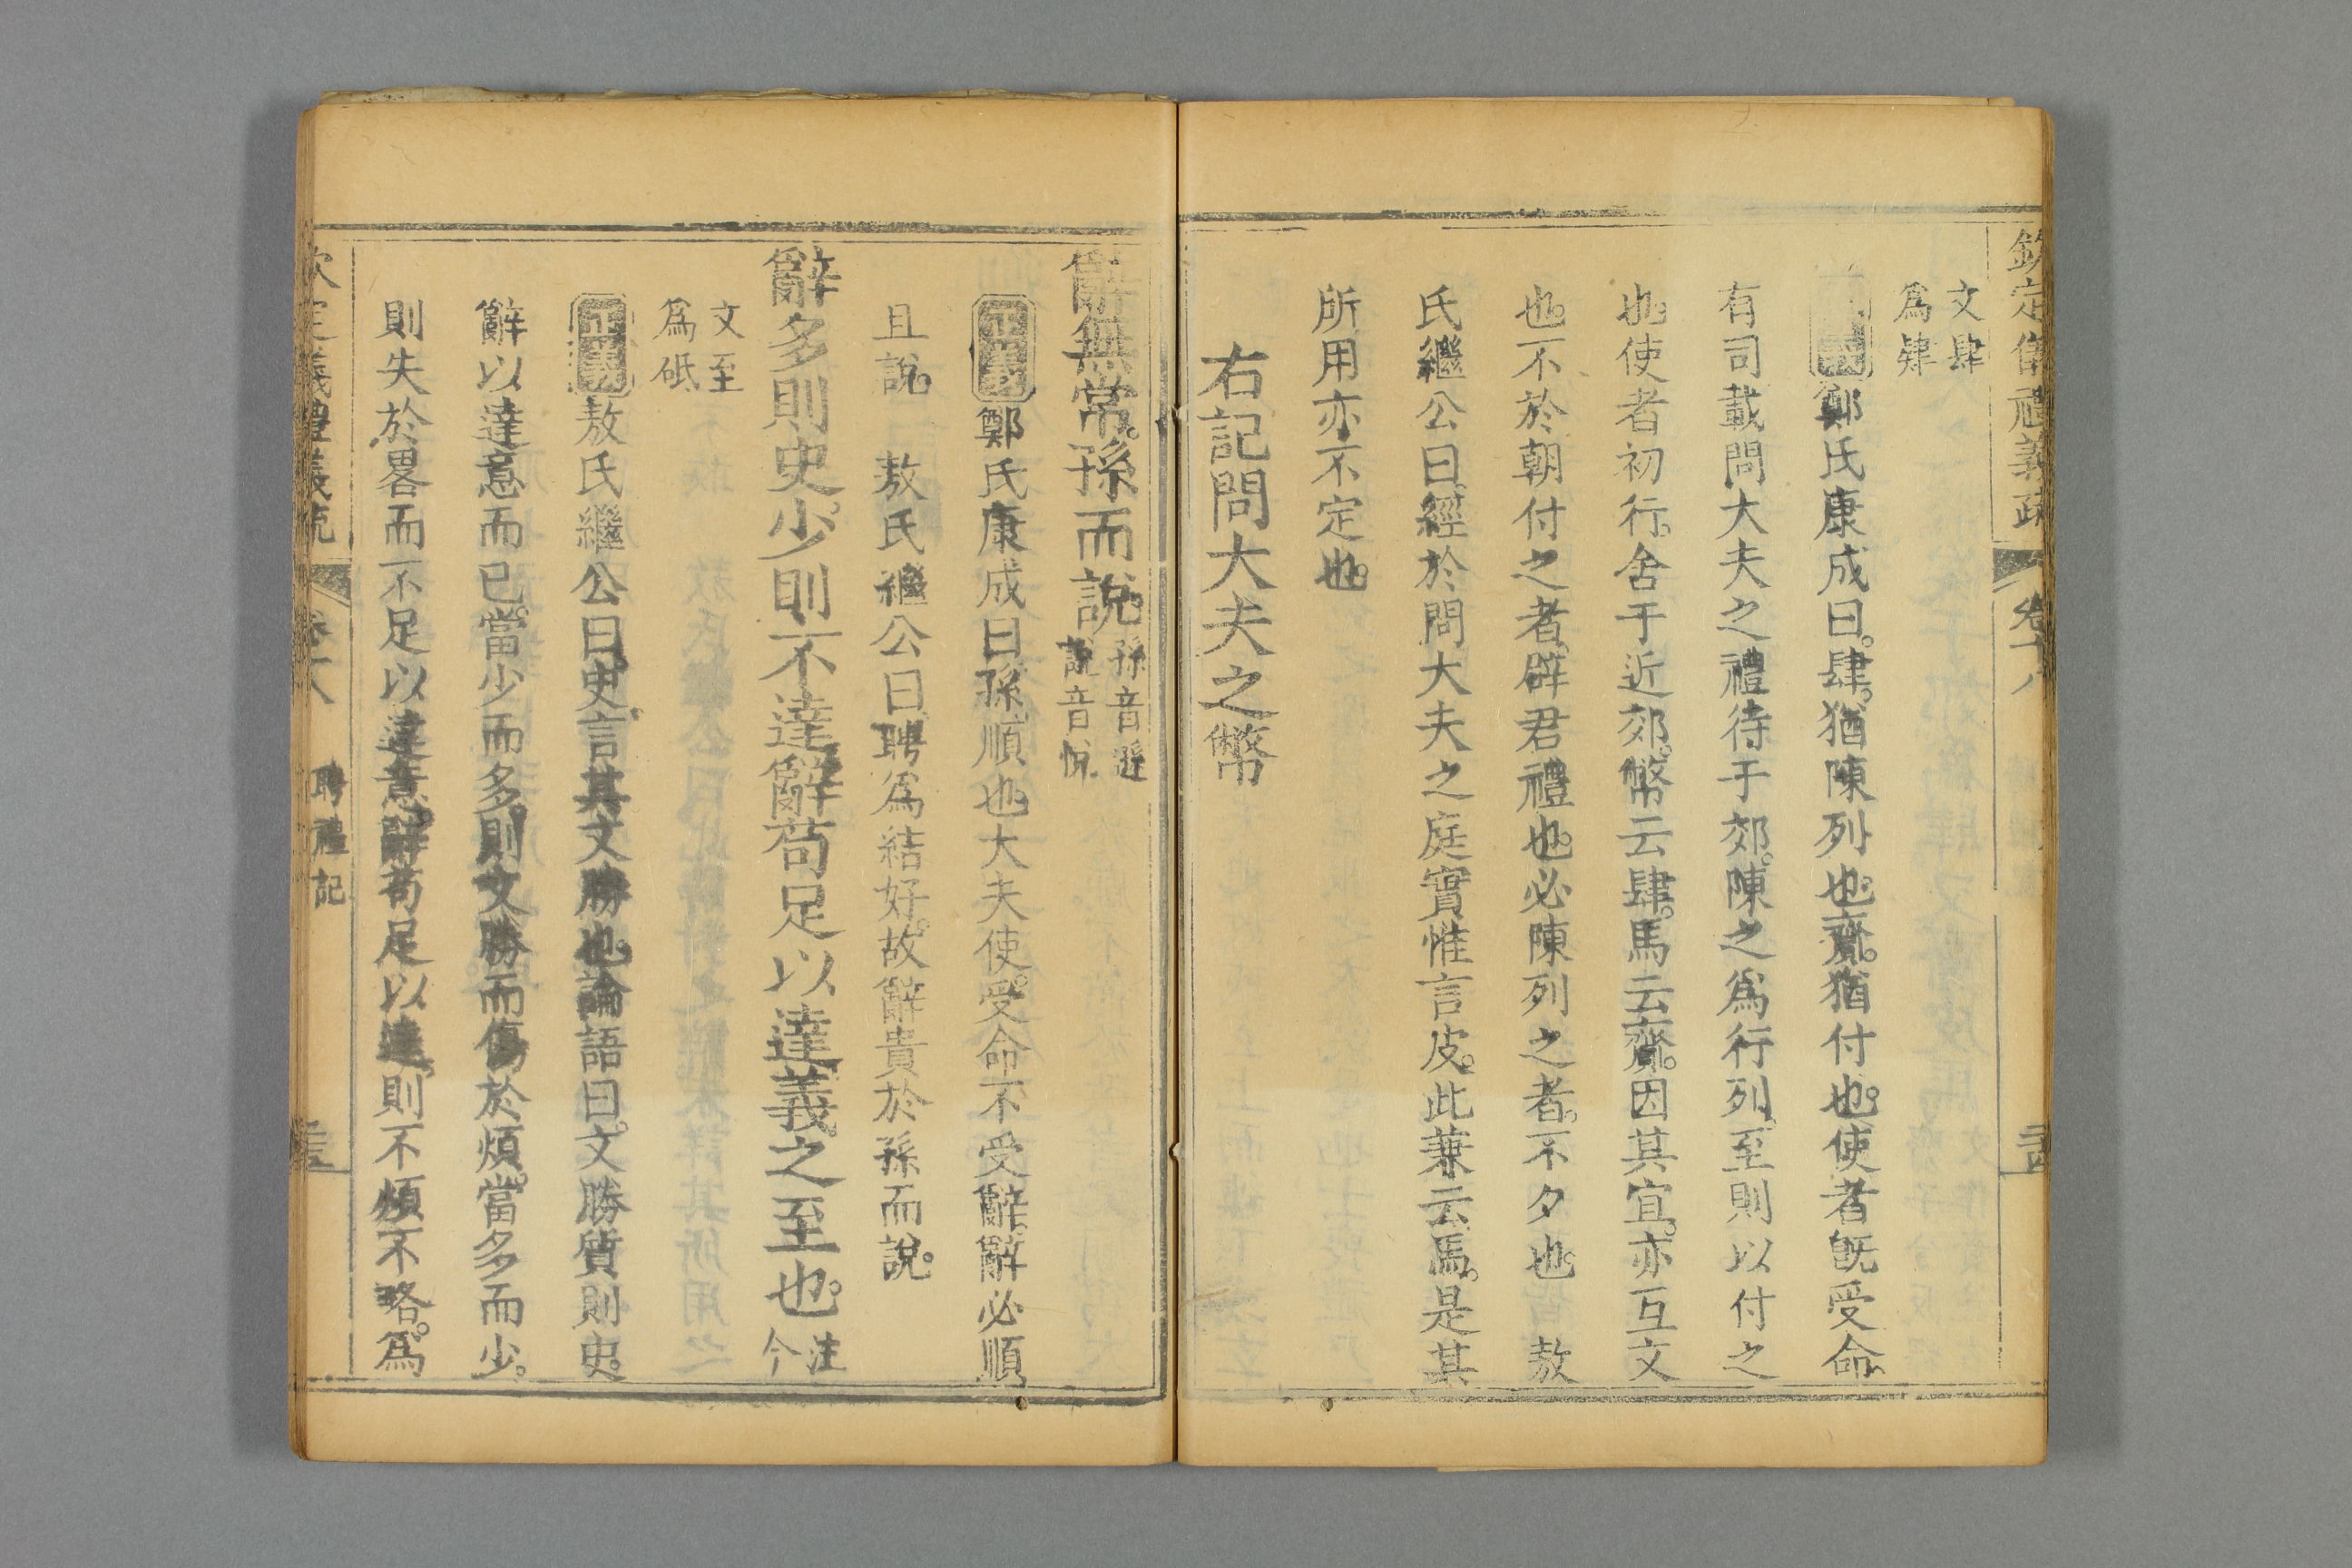 欽定儀禮義疏 卷十八
文肆
爲肄
正義鄭氏康成曰肆猶陳列也齎猶付也使者旣受命
有司載問大夫之禮待于郊陳之爲行列至則以付之
也使者初行舍于近郊幣云肆馬云齎因其宜亦互文
也不於朝付之者辟君禮也必陳列之者不夕也 敖
氏繼公曰經於問大夫之庭實惟言皮此兼云馬是其
所用亦不定也
右記問大夫之幣
辭無常孫而說孫音遜
說音悅
正義鄭氏康成曰孫順也大夫使受命不受辭辭必順
且說 敖氏繼公曰聘爲結好故辭貴於孫而說
辭多則史少則不達辭苟足以達義之至也注
今
文至
爲砥
正義敖氏繼公曰史言其文勝也論語曰文勝質則史
辭以達意而已當少而多則文勝而傷於煩當多而少
則失於畧而不足以達意辭苟足以達則不煩不略爲
欽定儀禮義疏 卷十八 聘禮記